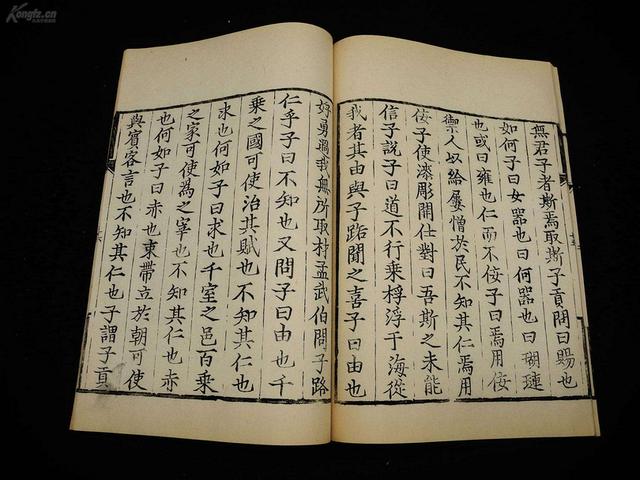 Kongfz.cn
無君子者斯焉取斯子貢問曰賜也
如何子曰女器也曰何器也曰瑚璉
也或曰雍也仁而不佞子曰焉用佞
禦人以給屢憎於民不知其仁焉用
佞子使漆彫開仕對曰吾斯之未能
信子說子曰道不行乗桴浮于海從
我者其由與子路聞之喜子曰由也
好勇過我無所取材孟武伯問子路
仁乎子曰不知也又問子曰由也千
乗之國可使治其賦也不知其仁也
求也何如子曰求也千室之邑百乗
之家可使為之宰也不知其仁也赤
也何如子曰赤也束帶立於朝可使
與賓客言也不知其仁也子謂子貢